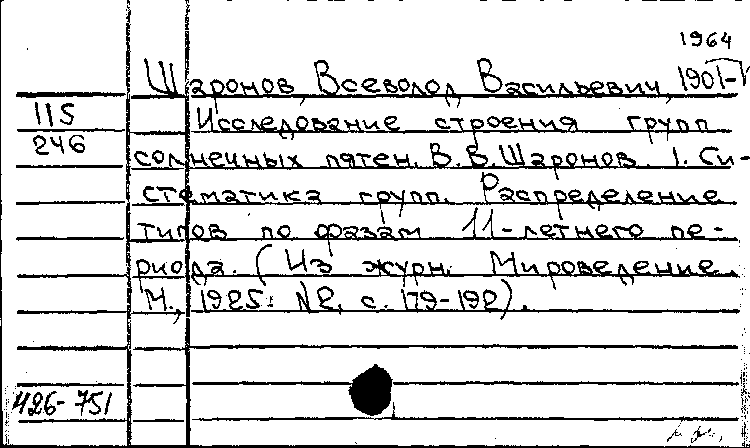 1964
Шаронов, Всеволод Васильевич, 1901-
115
Исследование строения групп
246
солнечных пятен. В.В. Шаронов. 1. Си-
стематика групп. Распределение
типов по фазам 11-летнего пе-
риода. (Из журн. Мироведение.
М., 1925. №2, с. 179-192).
426-751